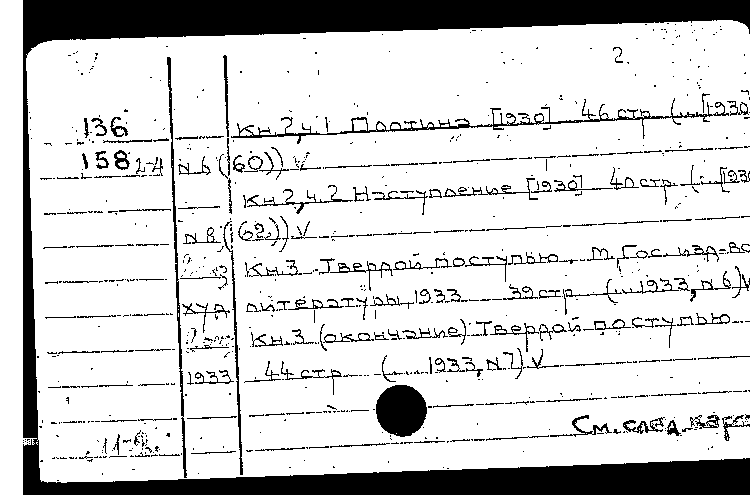 2.
136 Кн.2,ч.1 Плотина [1930] 46 стр (...[1930]
158 2-4 N 6 (60)) V
Кн 2,ч.2 Наступление [1930] 40 стр (...[1930
N 8 (62)) V
Кн.3 Твердой поступью. М, Гос. изд-во
худ литературы, 1933 39 стр (...1933, N 6) V
Кн.3 (окончание) Твердой поступью
1933 44 стр (...1933, N 7) V
См. след. карт